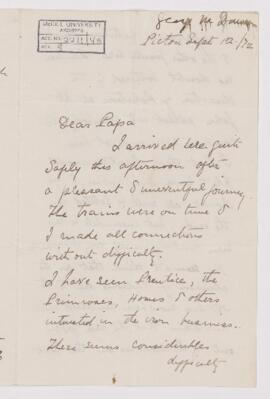 McGILL UNIVERSITY
ARCHIVES
ACC. NO. 2211/45
REF.
George M Dawson
Pictou Sept 12/72
Dear Papa
I arrived here quite
safely this afternoon after
a pleasant & uneventful journey.
The trains were on time &
I made all connections
without difficulty.
I have seen Prentice, the
Primroses, Homes & others
interested in the iron business.
There seems considerable
difficulty